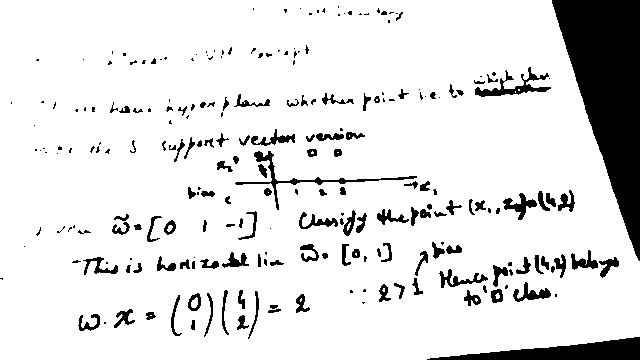 Linear SVM Concept
have hyperplane whether point i.e. to which class
the 3 support vector version
x₂
bias
0 1 2 3 → x₁
w̃ = [0 1 -1]. Classify the point (x₁, x₂) = (4,2)
This is horizontal lin w̃ = [0, 1] bias
w.x = (0 1) (4 2) = 2 ∵ 2 > 1 Hence point (4,2) belongs
to '□' class.